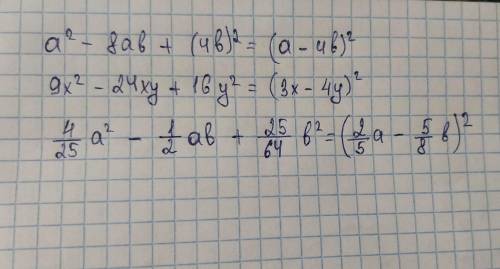 a² - 8ab + (4b)² = (a - 4b)²
9x² - 24xy + 16y² = (3x - 4y)²
4/25 a² - 1/2 ab + 25/64 b² = (2/5 a - 5/8 b)²